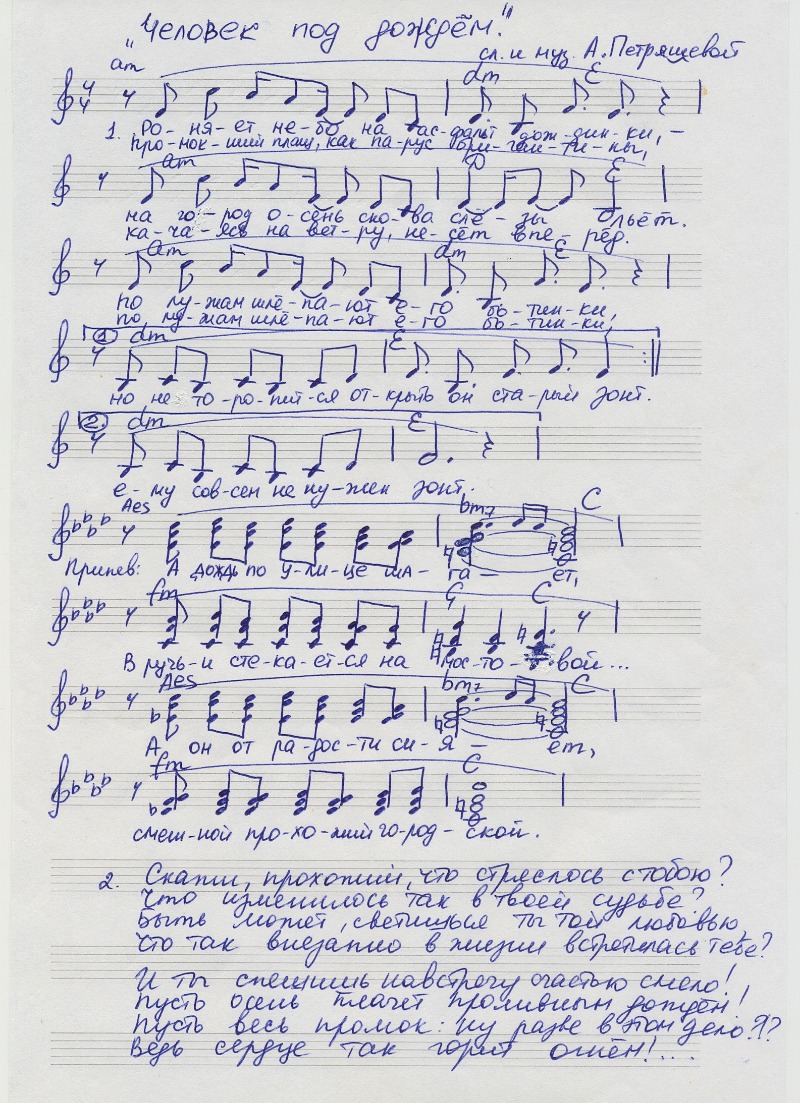 „Человек под дождём."
сл. и муз. А. Петряшевой
am dm E
1. Ро-ня-ет не-бо на ас-фальт дож-дин-ки, –
про-мок-ший плащ, как па-рус бри-ган-ти-ны,
am D E
на го-род о-сень сно-ва слё-зы льёт.
ка-ча-ясь на вет-ру, не-сёт впе-рёд.
am dm E
по лу-жам шлё-па-ют е-го бо-тин-ки,
по лу-жам шлё-па-ют е-го бо-тин-ки,
1. dm E
но не то-ро-пит-ся от-крыть он ста-рый зонт.
2. dm E
е-му сов-сем не ну-жен зонт.
Aes bm7 C
Припев: А дождь по у-ли-це ша-га-ет,
fm G C
В ручь-и сте-ка-ет-ся на мос-то-вой...
Aes bm7 C
А он от ра-дос-ти си-я-ет,
fm C
смеш-ной про-хо-жий го-род-ской.
2. Скажи, прохожий, что стряслось с тобою?
Что изменилось так в твоей судьбе?
Быть может, светишься ты той любовью,
Что так внезапно в жизни встретилась тебе?
И ты спешишь навстречу счастью смело!
Пусть осень плачет проливным дождём!
Пусть весь промок: ну разве в этом дело?!?
Ведь сердце так горит огнём!...